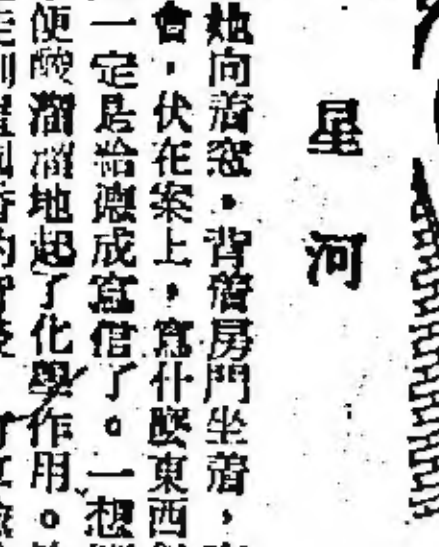 星河
她向着窓，背着房門坐着，
會，伏在案上，寫什麼東西
一定是給德成寫信了。一想
便酸溜溜地起了化學作用。